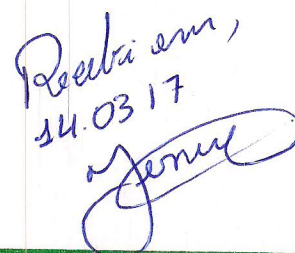 Recebi em,
14.03 17